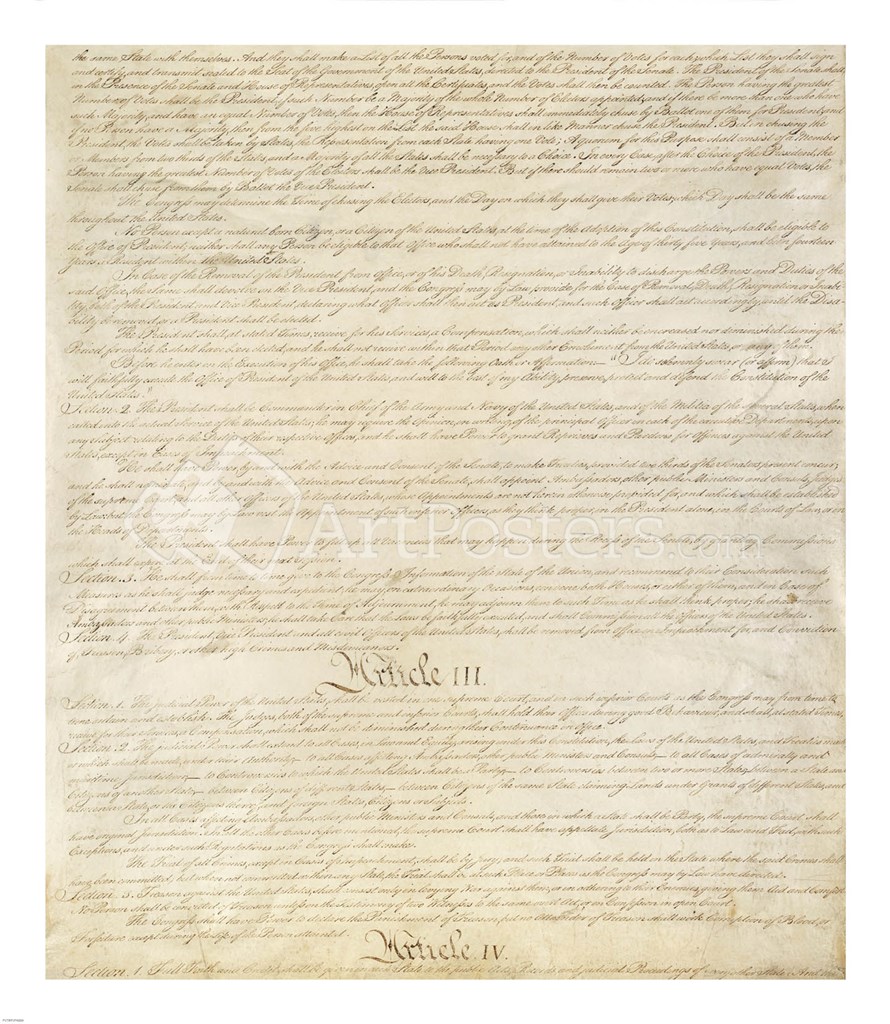 the same State with themselves. And they shall make a List of all the Persons voted for, and of the Number of Votes for each; which List they shall sign
and certify, and transmit sealed to the Seat of the Government of the United States, directed to the President of the Senate. The President of the Senate shall,
in the Presence of the Senate and House of Representatives, open all the Certificates, and the Votes shall then be counted. The Person having the greatest
Number of Votes shall be the President, if such Number be a Majority of the whole Number of Electors appointed; and if there be more than one who have
such Majority, and have an equal Number of Votes, then the House of Representatives shall immediately chuse by Ballot one of them for President; and
if no Person have a Majority, then from the five highest on the List the said House shall in like Manner chuse the President. But in chusing the
President, the Votes shall be taken by States, the Representation from each State having one Vote; A quorum for this Purpose shall consist of a Member
or Members from two thirds of the States, and a Majority of all the States shall be necessary to a Choice. In every Case, after the Choice of the President, the
Person having the greatest Number of Votes of the Electors shall be the Vice President. But if there should remain two or more who have equal Votes, the
Senate shall chuse from them by Ballot the Vice President.
The Congress may determine the Time of chusing the Electors, and the Day on which they shall give their Votes; which Day shall be the same
throughout the United States.
No Person except a natural born Citizen, or a Citizen of the United States, at the time of the Adoption of this Constitution, shall be eligible to
the Office of President; neither shall any Person be eligible to that Office who shall not have attained to the Age of thirty five Years, and been fourteen
Years a Resident within the United States.
In Case of the Removal of the President from Office, or of his Death, Resignation, or Inability to discharge the Powers and Duties of the
said Office, the Same shall devolve on the Vice President, and the Congress may by Law provide for the Case of Removal, Death, Resignation or Inabi-
lity, both of the President and Vice President, declaring what Officer shall then act as President, and such Officer shall act accordingly, until the Disa-
bility be removed, or a President shall be elected.
The President shall, at stated Times, receive for his Services, a Compensation, which shall neither be encreased nor diminished during the
Period for which he shall have been elected, and he shall not receive within that Period any other Emolument from the United States, or any of them.
Before he enter on the Execution of his Office, he shall take the following Oath or Affirmation:— "I do solemnly swear (or affirm) that I
will faithfully execute the Office of President of the United States, and will to the best of my Ability, preserve, protect and defend the Constitution of the
United States."
Section. 2. The President shall be Commander in Chief of the Army and Navy of the United States, and of the Militia of the several States, when
called into the actual Service of the United States; he may require the Opinion, in writing, of the principal Officer in each of the executive Departments, upon
any Subject relating to the Duties of their respective Offices, and he shall have Power to grant Reprieves and Pardons for Offences against the United
States, except in Cases of Impeachment.
He shall have Power, by and with the Advice and Consent of the Senate, to make Treaties, provided two thirds of the Senators present concur;
and he shall nominate, and by and with the Advice and Consent of the Senate, shall appoint Ambassadors, other public Ministers and Consuls, Judges
of the supreme Court, and all other Officers of the United States, whose Appointments are not herein otherwise provided for, and which shall be established
by Law: but the Congress may by Law vest the Appointment of such inferior Officers, as they think proper, in the President alone, in the Courts of Law, or in
the Heads of Departments.
ArtPosters.com
The President shall have Power to fill up all Vacancies that may happen during the Recess of the Senate, by granting Commissions
which shall expire at the End of their next Session.
Section. 3. He shall from time to time give to the Congress Information of the State of the Union, and recommend to their Consideration such
Measures as he shall judge necessary and expedient; he may, on extraordinary Occasions, convene both Houses, or either of them, and in Case of
Disagreement between them, with Respect to the Time of Adjournment, he may adjourn them to such Time as he shall think proper; he shall receive
Ambassadors and other public Ministers; he shall take Care that the Laws be faithfully executed, and shall Commission all the Officers of the United States.
Section. 4. The President, Vice President and all civil Officers of the United States, shall be removed from Office on Impeachment for, and Conviction
of, Treason, Bribery, or other high Crimes and Misdemeanors.
Article III.
Section. 1. The judicial Power of the United States, shall be vested in one supreme Court, and in such inferior Courts as the Congress may from time to
time ordain and establish. The Judges, both of the supreme and inferior Courts, shall hold their Offices during good Behaviour, and shall, at stated Times,
receive for their Services, a Compensation, which shall not be diminished during their Continuance in Office.
Section. 2. The judicial Power shall extend to all Cases, in Law and Equity, arising under this Constitution, the Laws of the United States, and Treaties made,
or which shall be made, under their Authority;— to all Cases affecting Ambassadors, other public Ministers and Consuls;— to all Cases of admiralty and
maritime Jurisdiction;— to Controversies to which the United States shall be a Party;— to Controversies between two or more States;— between a State and
Citizens of another State;— between Citizens of different States,— between Citizens of the same State claiming Lands under Grants of different States, and
between a State, or the Citizens thereof, and foreign States, Citizens or Subjects.
In all Cases affecting Ambassadors, other public Ministers and Consuls, and those in which a State shall be Party, the supreme Court shall
have original Jurisdiction. In all the other Cases before mentioned, the supreme Court shall have appellate Jurisdiction, both as to Law and Fact, with such
Exceptions, and under such Regulations as the Congress shall make.
The Trial of all Crimes, except in Cases of Impeachment, shall be by Jury; and such Trial shall be held in the State where the said Crimes shall
have been committed; but when not committed within any State, the Trial shall be at such Place or Places as the Congress may by Law have directed.
Section. 3. Treason against the United States, shall consist only in levying War against them, or in adhering to their Enemies, giving them Aid and Comfort.
No Person shall be convicted of Treason unless on the Testimony of two Witnesses to the same overt Act, or on Confession in open Court.
The Congress shall have Power to declare the Punishment of Treason, but no Attainder of Treason shall work Corruption of Blood, or
Forfeiture except during the Life of the Person attainted.
Article IV.
Section. 1. Full Faith and Credit shall be given in each State to the public Acts, Records, and judicial Proceedings of every other State. And the